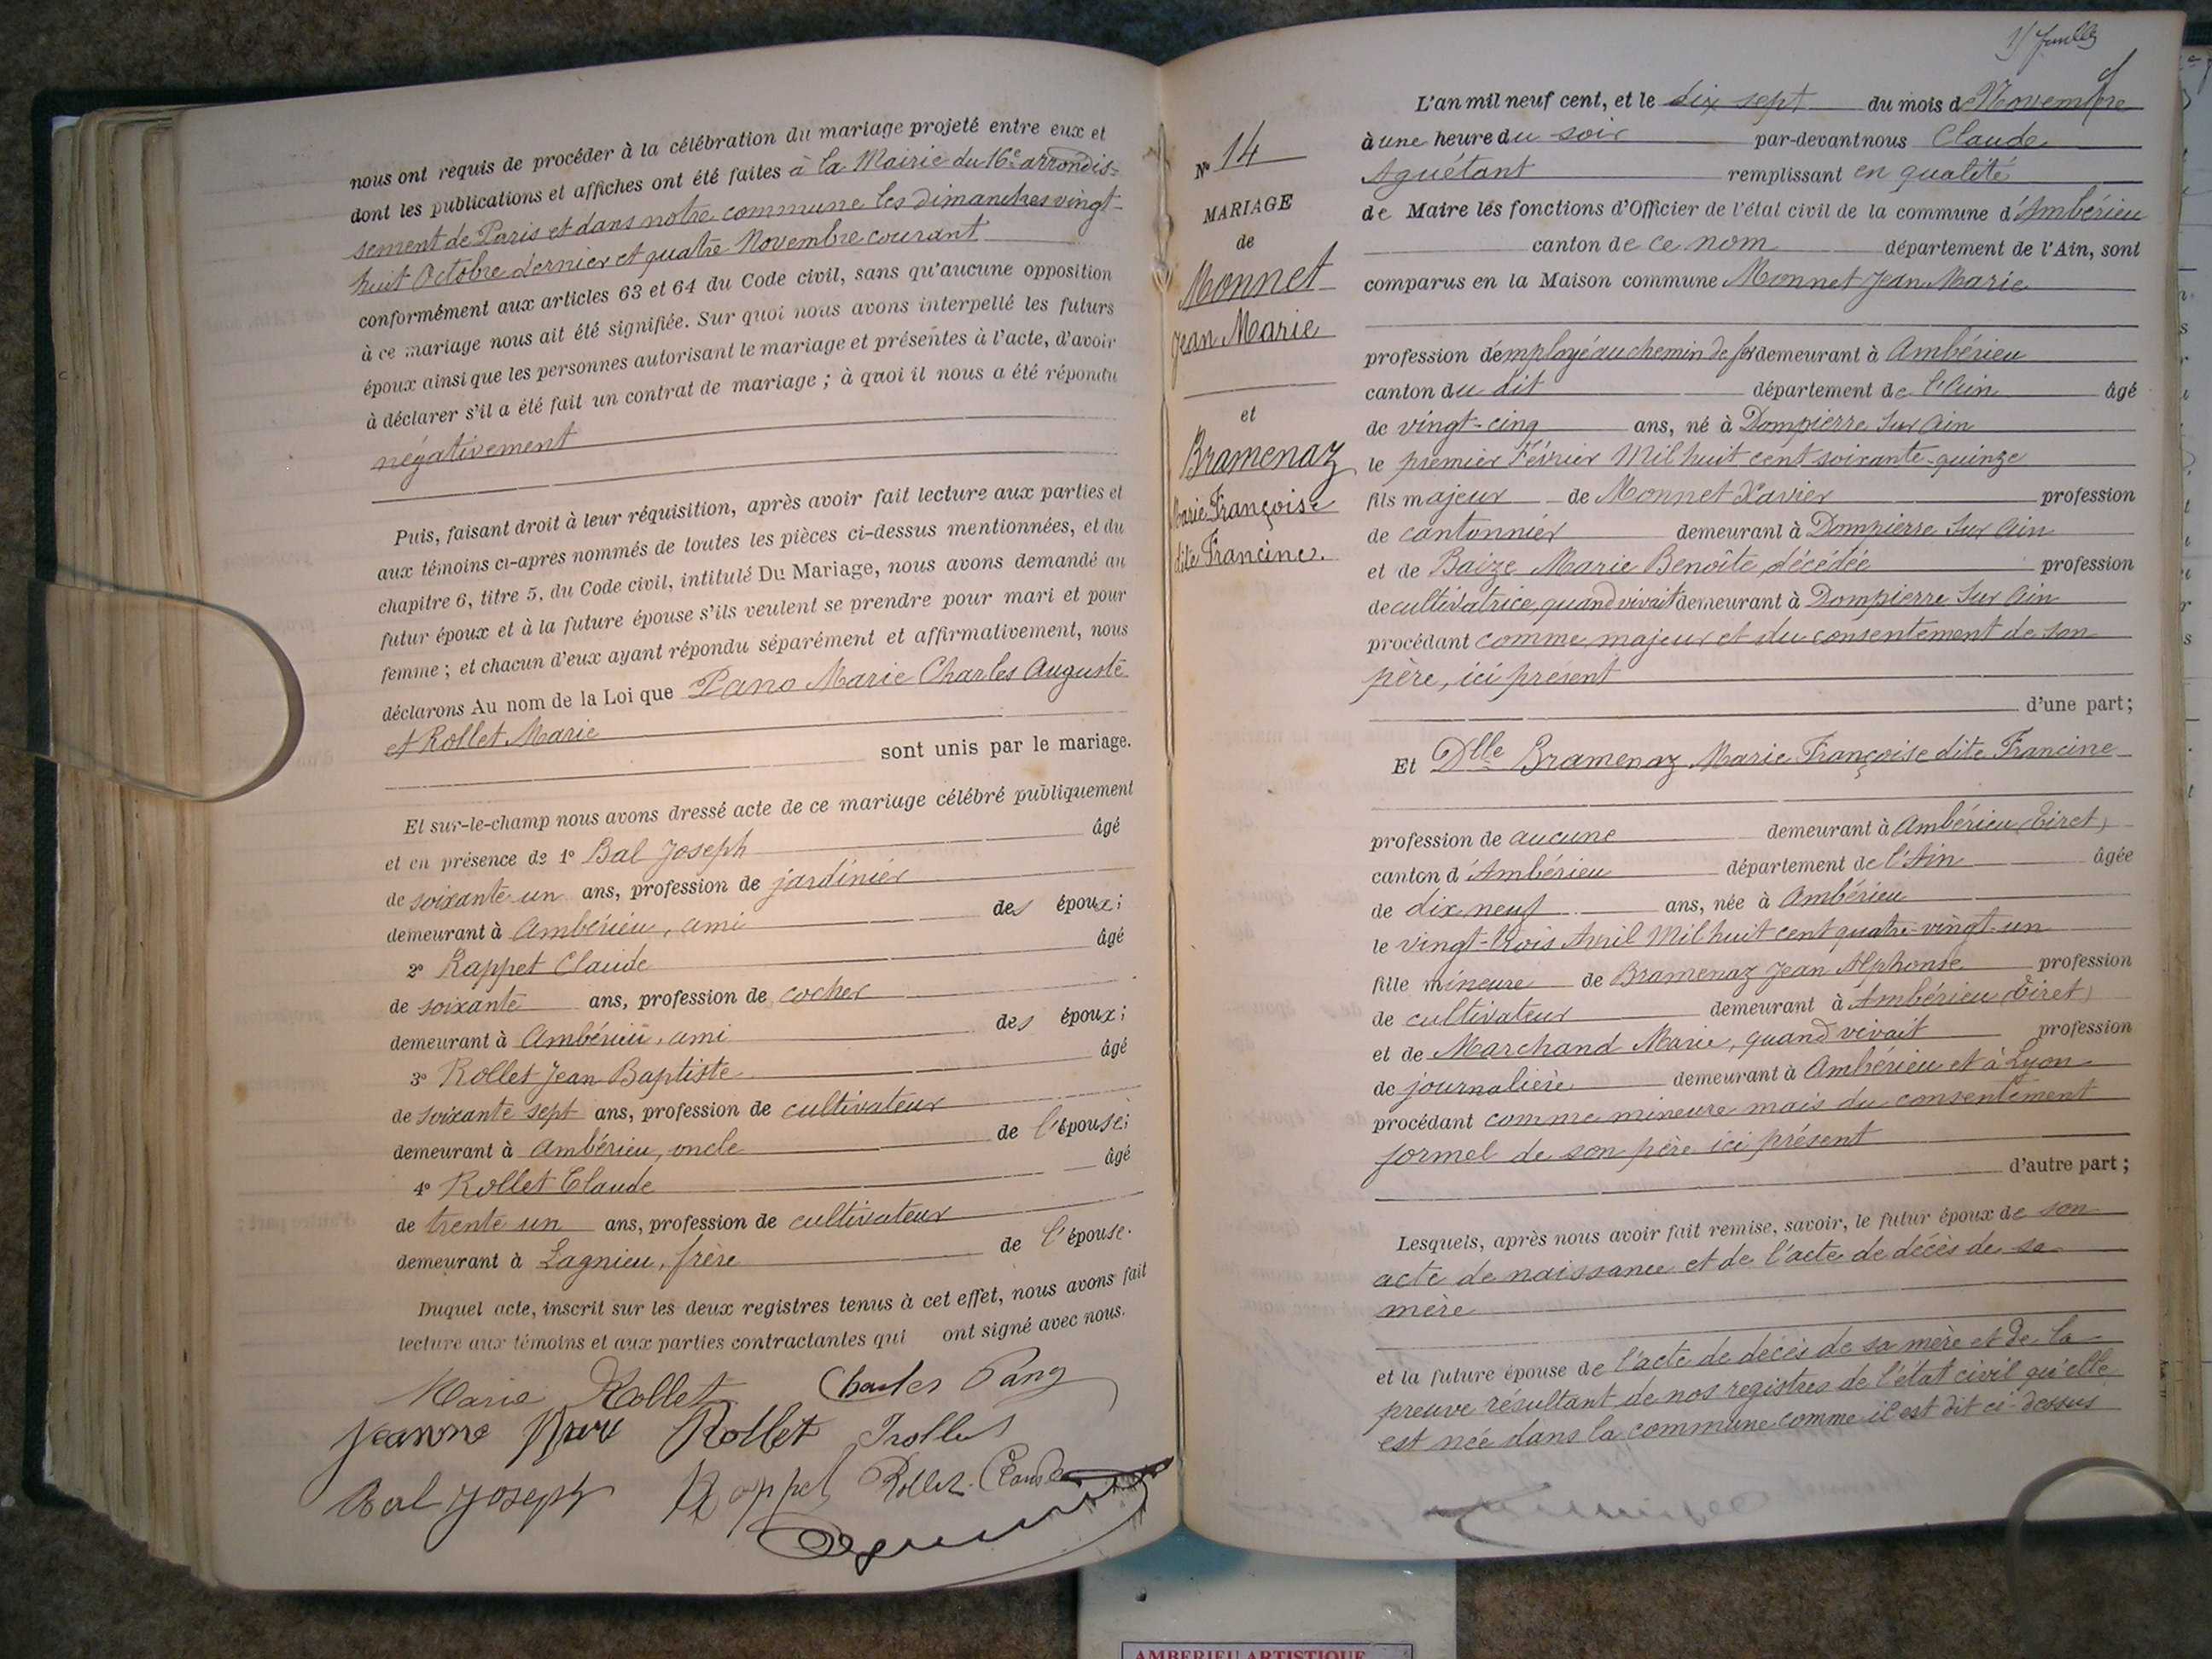 nous ont requis de procéder à la célébration du mariage projeté entre eux et
dont les publications et affiches ont été faites à la Mairie du 16e arrondis-
sement de Paris et dans notre commune les dimanches vingt-
huit Octobre dernier et quatre Novembre courant
conformément aux articles 63 et 64 du Code civil, sans qu'aucune opposition
à ce mariage nous ait été signifiée. Sur quoi nous avons interpellé les futurs
époux ainsi que les personnes autorisant le mariage et présentes à l'acte, d'avoir
à déclarer s'il a été fait un contrat de mariage ; à quoi il nous a été répondu
négativement
Puis, faisant droit à leur réquisition, après avoir fait lecture aux parties et
aux témoins ci-apres nommés de toutes les pièces ci-dessus mentionnées, et du
chapitre 6, titre 5, du Code civil, intitulé Du Mariage, nous avons demandé au
futur époux et à la future épouse s'ils veulent se prendre pour mari et pour
femme ; et chacun d'eux ayant répondu séparément et affirmativement, nous
déclarons Au nom de la Loi que Pano Marie Charles Auguste
et Rollet Marie
sont unis par le mariage.
Et sur-le-champ nous avons dressé acte de ce mariage célébré publiquement
et en présence de 1° Bal Joseph âgé
de soixante un ans, profession de jardinier
demeurant à Ambérieu, ami des époux ;
2° Rappet Claude âgé
de soixante ans, profession de cocher
demeurant à Ambérieu, ami des époux ;
3° Rollet Jean Baptiste âgé
de soixante sept ans, profession de cultivateur
demeurant à Ambérieu, oncle de l'épouse ;
4° Rollet Claude âgé
de trente un ans, profession de cultivateur
demeurant à Lagnieu, frère de l'épouse.
Duquel acte, inscrit sur les deux registres tenus à cet effet, nous avons fait
lecture aux témoins et aux parties contractantes qui ont signé avec nous.
Marie Rollet Charles Pano
Jeanne Rollet
Bal Joseph Rappet Rollet Claude
N° 14
MARIAGE
de
Monnet
Jean Marie
et
Bramenaz
Marie Françoise
dite Francine.
L'an mil neuf cent, et le dix sept du mois de Novembre
à une heure du soir par-devant nous Claude
Aguétant remplissant en qualité
de Maire les fonctions d'Officier de l'état civil de la commune d'Ambérieu
canton de ce nom département de l'Ain, sont
comparus en la Maison commune Monnet Jean Marie
profession d'employé au chemin de fer demeurant à Ambérieu
canton du dit département de l'Ain âgé
de vingt-cinq ans, né à Dompierre sur Ain
le premier Février Mil huit cent soixante-quinze
fils majeur de Monnet Xavier profession
de cantonnier demeurant à Dompierre sur Ain
et de Baize Marie Benoîte, décédée profession
de cultivatrice, quand vivait demeurant à Dompierre sur Ain
procédant comme majeur et du consentement de son
père, ici présent
d'une part ;
Et Dlle Bramenaz Marie Françoise dite Francine
profession de aucune demeurant à Ambérieu (Tiret)
canton d'Ambérieu département de l'Ain âgée
de dix neuf ans, née à Ambérieu
le vingt-trois Avril Mil huit cent quatre-vingt-un
fille mineure de Bramenaz Jean Alphonse profession
de cultivateur demeurant à Ambérieu (Tiret)
et de Marchand Marie, quand vivait profession
de journalière demeurant à Ambérieu et à Lyon
procédant comme mineure mais du consentement
formel de son père ici présent
d'autre part ;
Lesquels, après nous avoir fait remise, savoir, le futur époux de son
acte de naissance et de l'acte de décès de sa
mère
et la future épouse de l'acte de décès de sa mère et de la
preuve résultant de nos registres de l'état civil qu'elle
est née dans la commune comme il est dit ci-dessus
AMBERIEU ARTISTIQUE